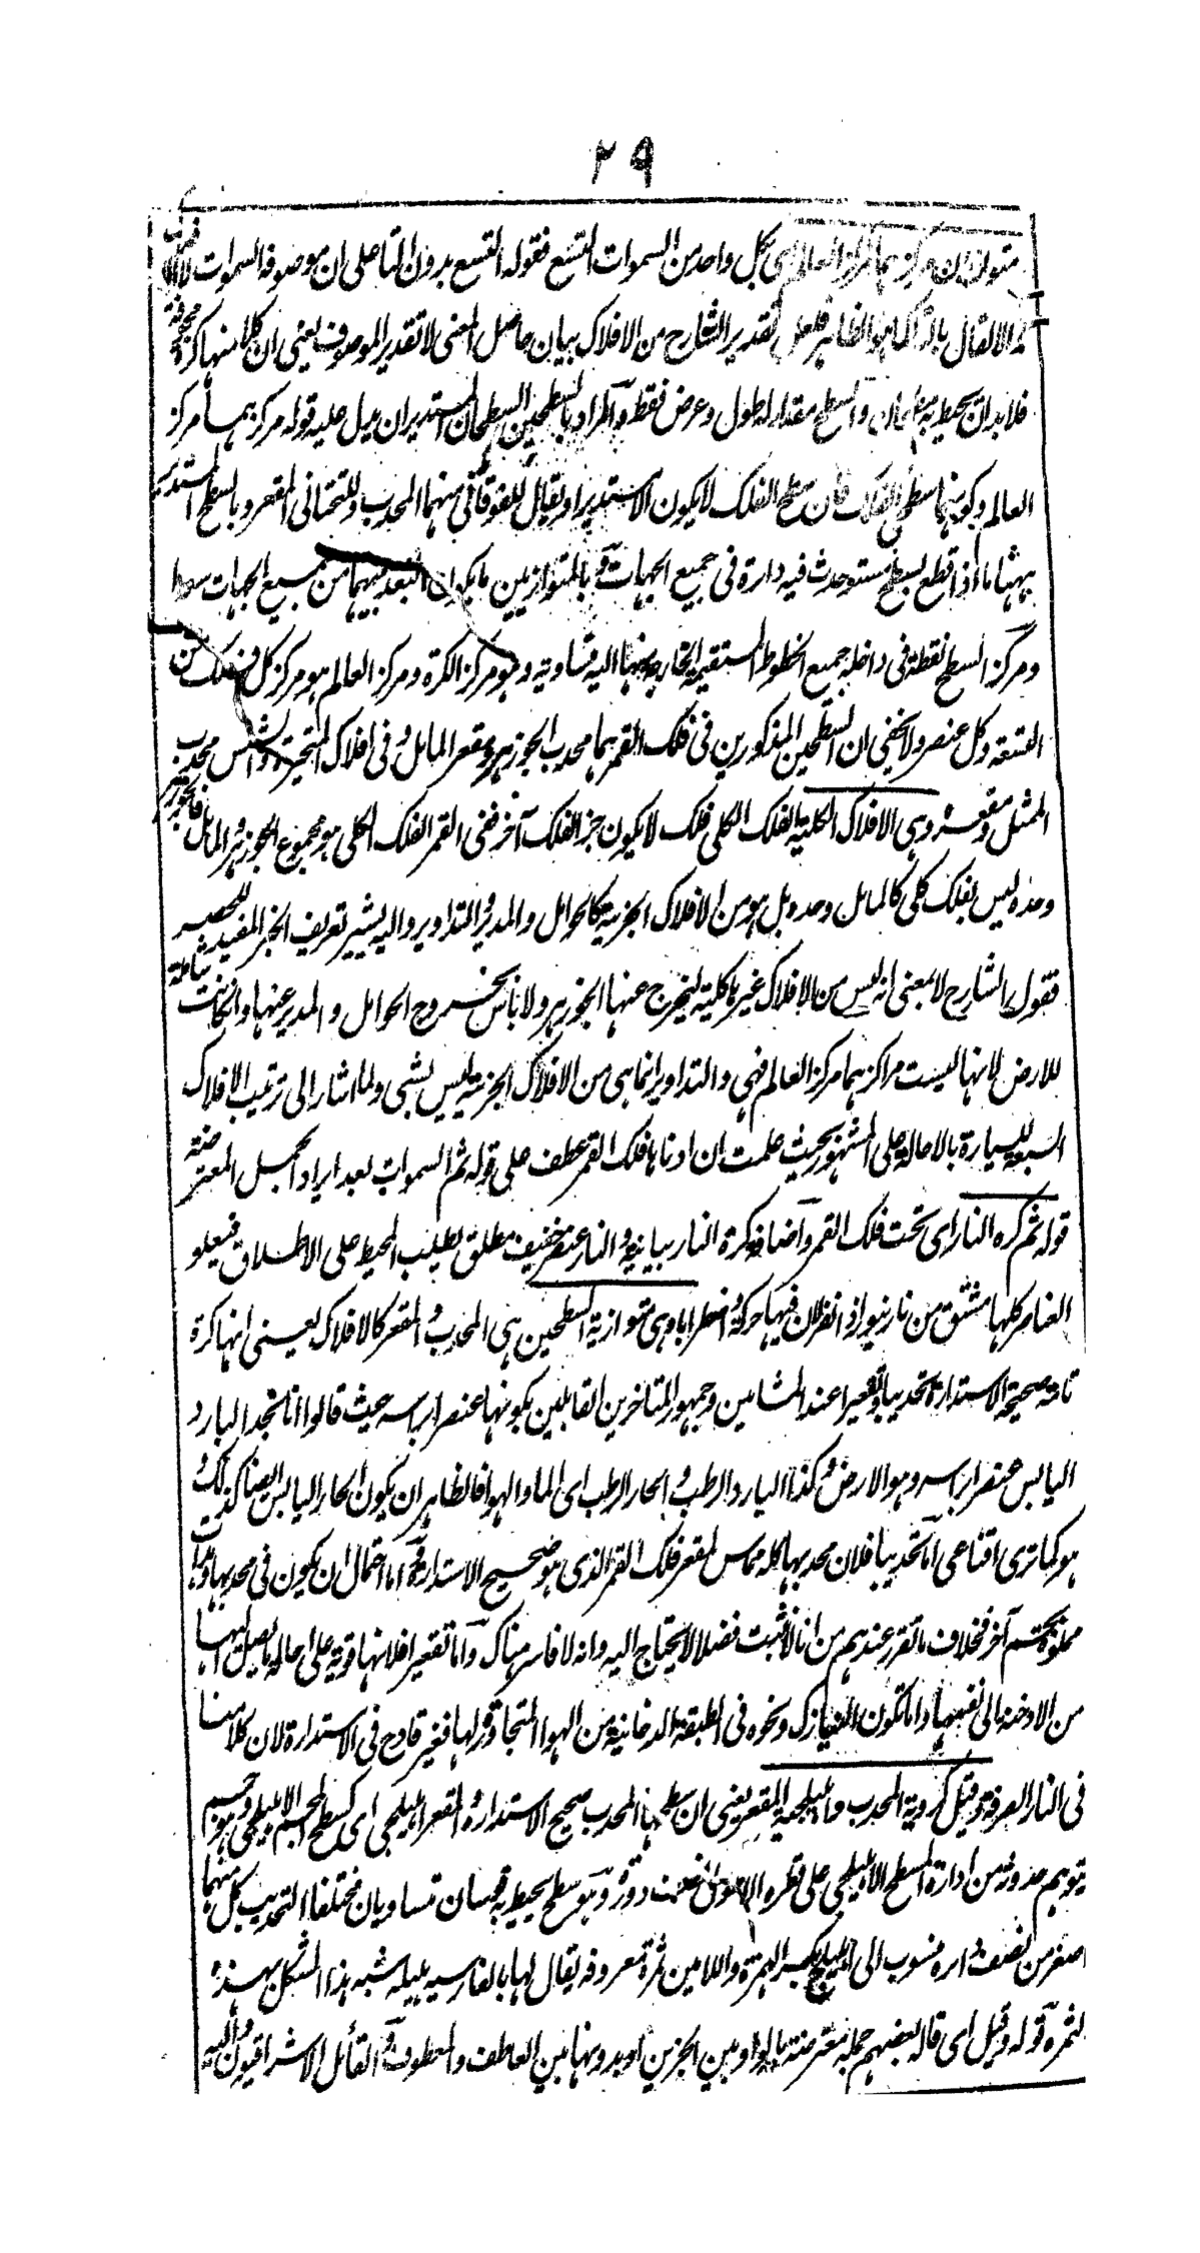 ٢٩
متوازيان مركزهما مركز العالم اى كل واحد من السموات التسع فقوله التسع بدون التا على ان موصوفه السموات لا الافلاك
والا لقال بالتا كما هو الظاهر فلعل تقدير الشارح من الافلاك بيان حاصل المعنى لا تقدير الموصوف يعنى ان كلا منها كرة مجوفة
فلا بد ان يحيط به سطحان والسطح مقدار له طول وعرض فقط والمراد بالسطحين السطحان المستديران يدل عليه قوله مركزهما مركز
العالم وكونهما سطحى الفلك فان سطح الفلك لا يكون الا مستديرا ويقال للفوقانى منهما المحدب وللتحتانى المقعر وبالسطح المستدير
ههنا ما اذا قطع بسطح مستو حدث فيه دائرة فى جميع الجهات وبالمتوازيين ما يكون البعد بينهما من جميع الجهات سواء
ومركز السطح نقطة فى داخله جميع الخطوط المستقيمة الخارجة منها اليه متساوية وهو مركز الكرة ومركز العالم هو مركز كل فلك من
التسعة وكل عنصر ولا يخفى ان السطحين المذكورين فى فلك القمر هما محدب الجوزهر ومقعر المائل وفى افلاك المتحيرة والشمس محدب
الممثل ومقعره وهى الافلاك الكلية الفلك الكلى فلك لا يكون جزء الفلك آخر ففى القمر الفلك الكلى هو مجموع الجوزهر والمائل فالجوزهر
وحده ليس بفلك كلى كالمائل وحده بل هو من الافلاك الجزئية كالحوامل والمدير والتداوير واليه يشير تعريف الخبر المفيد للحصر
فقول الشارح لا بمعنى انه ليس من الافلاك غيرها كلية ليخرج عنها الجوزهر ولا باس بخروج الحوامل والمدير عنها وان كانت شاملة
للارض لانها ليست مراكزهما مركز العالم فهى والتداوير انما هى من الافلاك الجزئية ليس بشى ولما اشار الى ترتيب الافلاك
السبعة السيارة بالاحالة على المشهور بحيث علمت ان ادناها فلك القمر عطف على قوله ثم السموات بعد ايراد الجمل المعترضة
قوله ثم كره النار اى تحت فلك القمر واضافة كرة النار بيانية والنار عنصر خفيف مطلق يطلب المحيط على الاطلاق فيعلو
العناصر كلها مشتق من نار ينور اذا نفر لان فيها حركة واضطرابا وهى متوازية السطحين هى المحدب والمقعر كالافلاك يعنى انها كرة
تامة صحيحة الاستدارة تحديبا وتقعيرا عند المشائين وجمهور المتاخرين القائلين بكونها عنصرا براسه حيث قالوا انا نجد البارد
اليابس عنصرا براسه وهو الارض وكذا البارد الرطب والحار الرطب اى الماء والهواء فالظاهر ان يكون الحار اليابس ايضا كذلك و
هو كما ترى اقناعى اما تحديبا فلان محدبها كله مماس لمقعر فلك القمر الذى هو صحيح الاستدارة واما احتمال ان يكون فى محدبها
مملوة بجسم آخر فخلاف ما تقرر عندهم من انا لا نثبت فضلا لا يحتاج اليه وانه لا قاسر هناك واما تقعيرا فلانها قوية على احالة ما يصل اليها
من الادخنة الى نفسها واما تكون النيازك ونحوه فى الطبقة الدخانية من الهواء المتجاورة لها فغير قادح فى الاستدارة لان كلامنا
فى النار الصرفة وقيل كروية المحدب واهليلجية المقعر يعنى ان سطحها المحدب صحيح الاستدارة والمقعر اهليلجى اى كسطح الجسم الاهليلجى وهو جسم
يتوهم حدوثه من ادارة السطح الاهليلجى على قطره الاطول نصف دورة وهو سطح يحيط به قوسان متساويان مختلفا التحديب كل منهما
اصغر من نصف دائرة منسوب الى اهليلج بكسر الهمزة واللامين ثمرة معروفة يقال لها بالفارسيه هليله شبه هذا الشكل بهذه
الثمرة قوله وقيل اى قاله بعضهم جملة معترضة بالواو بين الجزئين او بدونها بين العاطف والمعطوف والقائل الاشراقيون